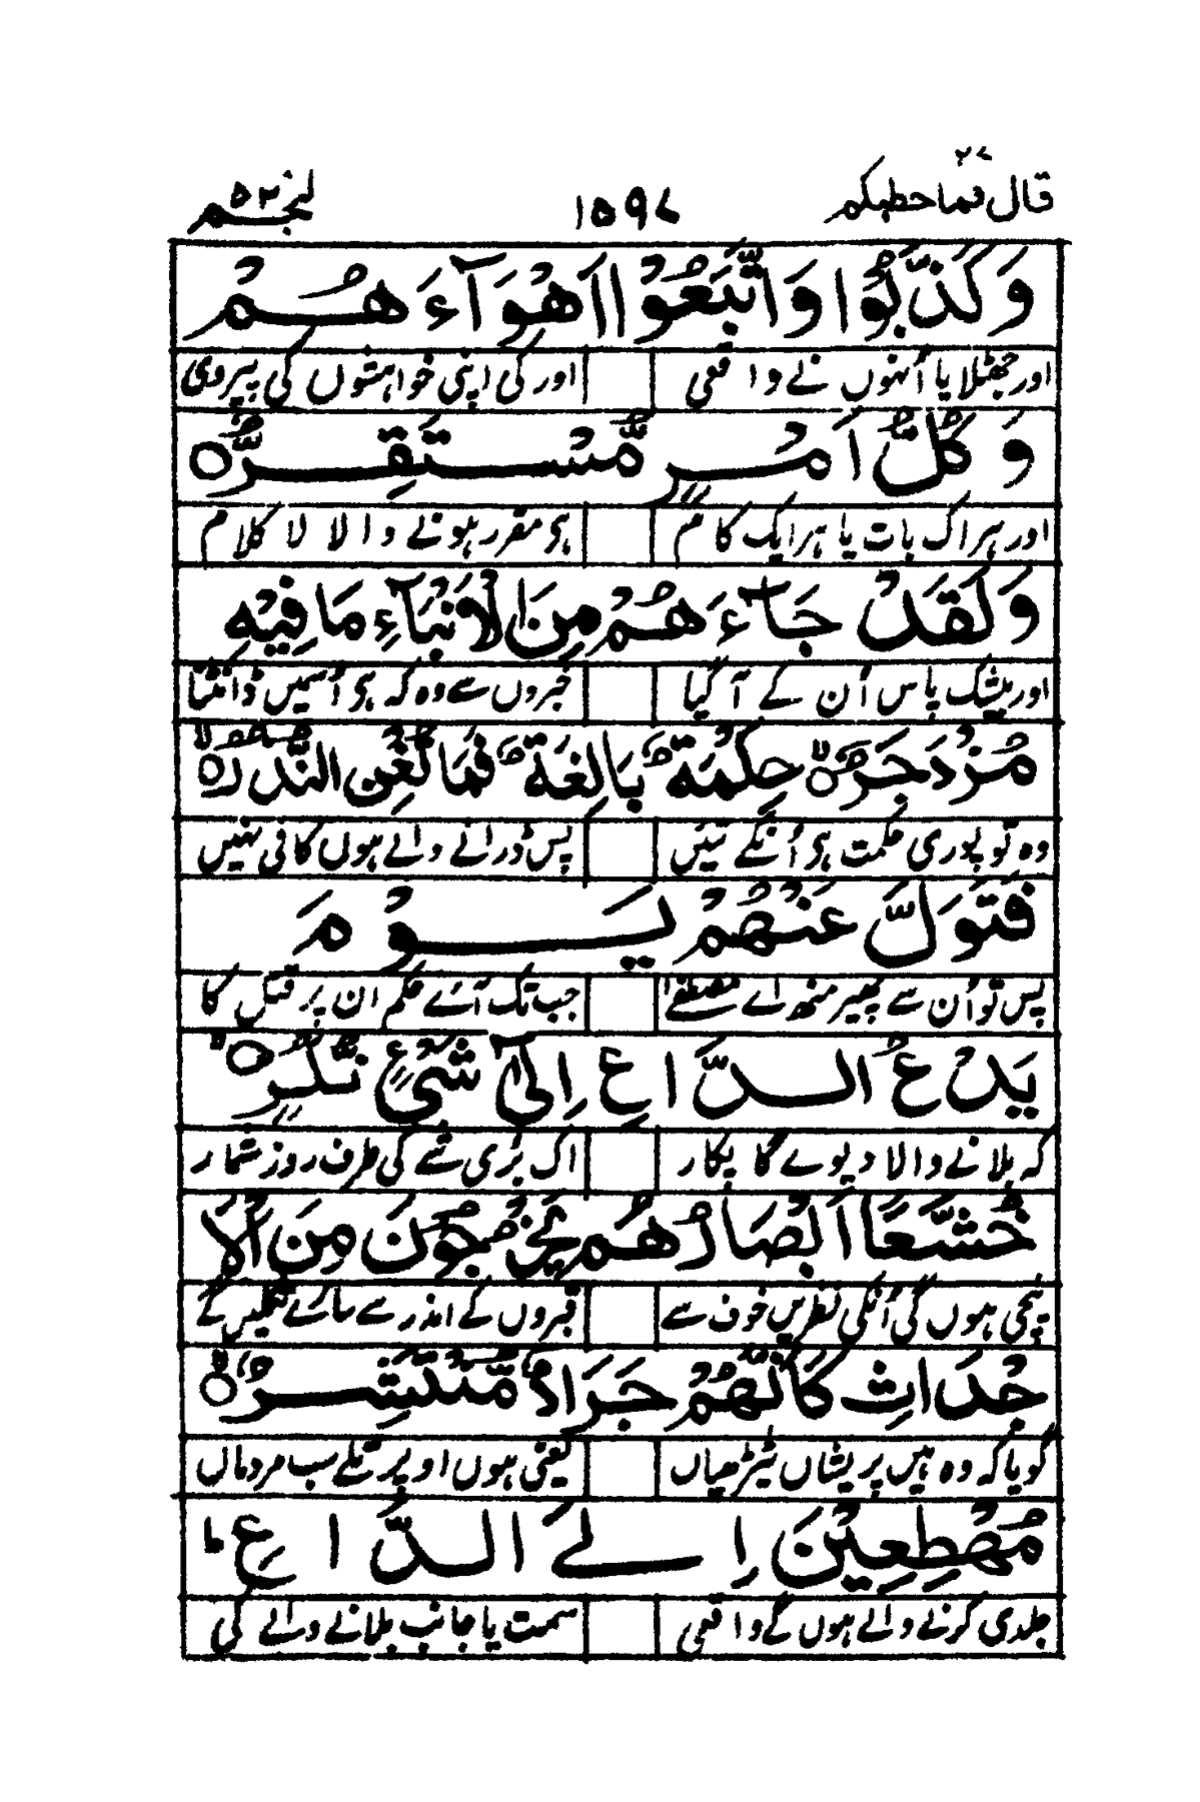 قال فما خطبكم ۲۷ ۱۵۹۷ النجم ۵۳
وَكَذَّبُوْا وَاتَّبَعُوْا اَهْوَآءَ هُمْ
اور جھٹلایا اُنہوں نے واقعی اور کی اپنی خواہشوں کی پیروی
وَ كُلُّ اَمْرٍ مُّسْتَقِرٌّ ○
اور ہر اک بات یا ہر ایک کام ہی مقرر ہونے والا لا کلام
وَلَقَدْ جَآءَ هُمْ مِنَ الْاَنْۢبَآءِ مَا فِيْهِ
اور بیشک پاس اُن کے آ گیا خبروں سے وہ کہ ہی اُسمیں ڈانٹنا
مُزْدَجَرٌ ○ حِكْمَةٌ بَالِغَةٌ فَمَا تُغْنِ النُّذُرُ ○
وہ تو پوری حکمت ہی اُنکے تئیں پس ڈرانے والے ہوں کافی نہیں
فَتَوَلَّ عَنْهُمْ يَوْمَ
پس تو اُن سے پھیر منھ اے مصطفےٰ جب تک آئے حکم ان پر قتل کا
يَدْعُ الدَّاعِ اِلٰى شَىْءٍ نُّكُرٍ ○
کہ بلانے والا دیوے گا پکار اک بُری شے کی طرف روز شمار
خُشَّعًا اَبْصَارُهُمْ يَخْرُجُوْنَ مِنَ الْاَ
نیچی ہوں گی اُنکی نظریں خوف سے قبروں کے اندر سے سارے نکلیں گے
جْدَاثِ كَاَنَّهُمْ جَرَادٌ مُّنْتَشِرٌ ○
گویا کہ وہ ہیں پریشاں ٹیڑھیاں یعنی ہوں اوپر تلے سب مردماں
مُهْطِعِيْنَ اِلَے الدَّاعِ ط
جلدی کرنے والے ہوں گے واقعی سمت یا جانب بلانے والے کی